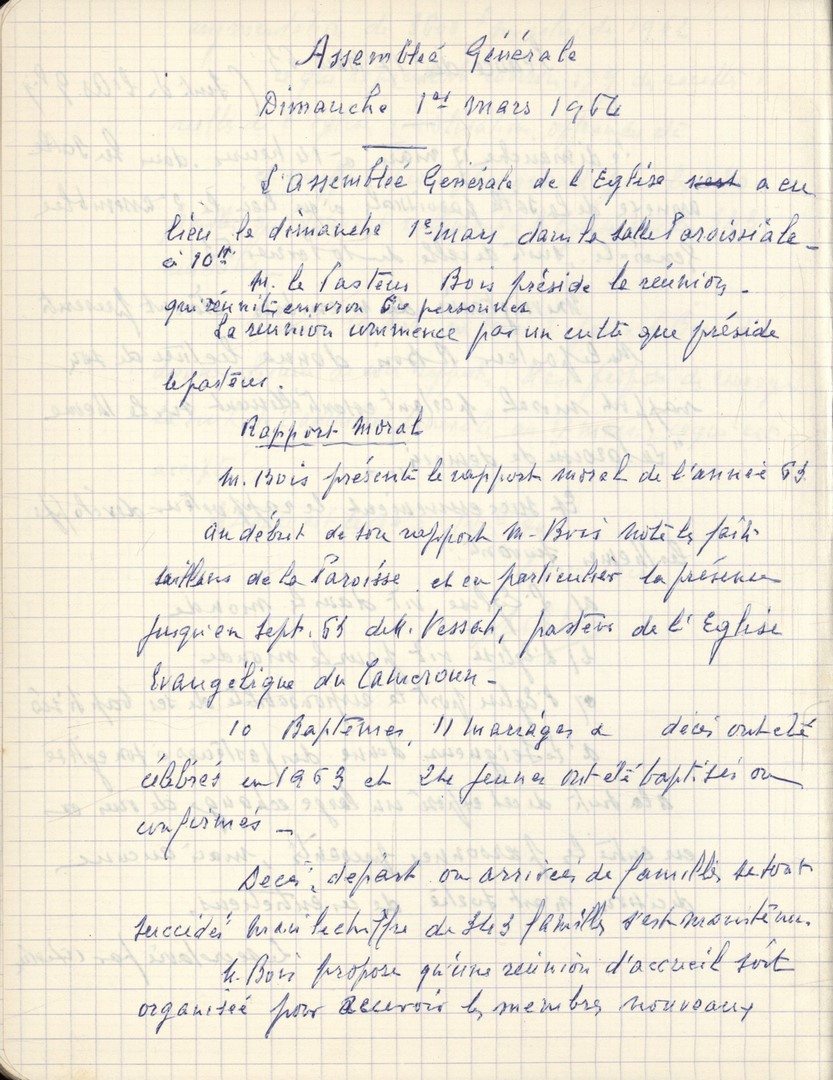 Assemblée Générale
Dimanche 1er mars 1964
L'assemblée Générale de l'Eglise s'est a eu
lieu le dimanche 1er mars dans la salle Paroissiale
à 10H.
M. le Pasteur Bois préside la réunion.
qui réunit environ personnes
La réunion commence par un culte que préside
le pasteur.
Rapport Moral
M. Bois présente le rapport moral de l'année 63.
Au début de son rapport M. Bois note les faits
saillans de la Paroisse et en particulier la présence
jusqu'en sept. 63 de M. Vessah, pasteur de l'Eglise
Evangélique du Cameroun.
10 Baptêmes, 11 mariages & décès ont été
célébrés en 1963 et 24 jeunes ont été baptisés ou
confirmés.
Décès, départ ou arrivées de familles se sont
succédés mais le chiffre de 343 familles s'est maintenu.
M. Bois propose qu'une réunion d'accueil soit
organisée pour recevoir les membres nouveaux